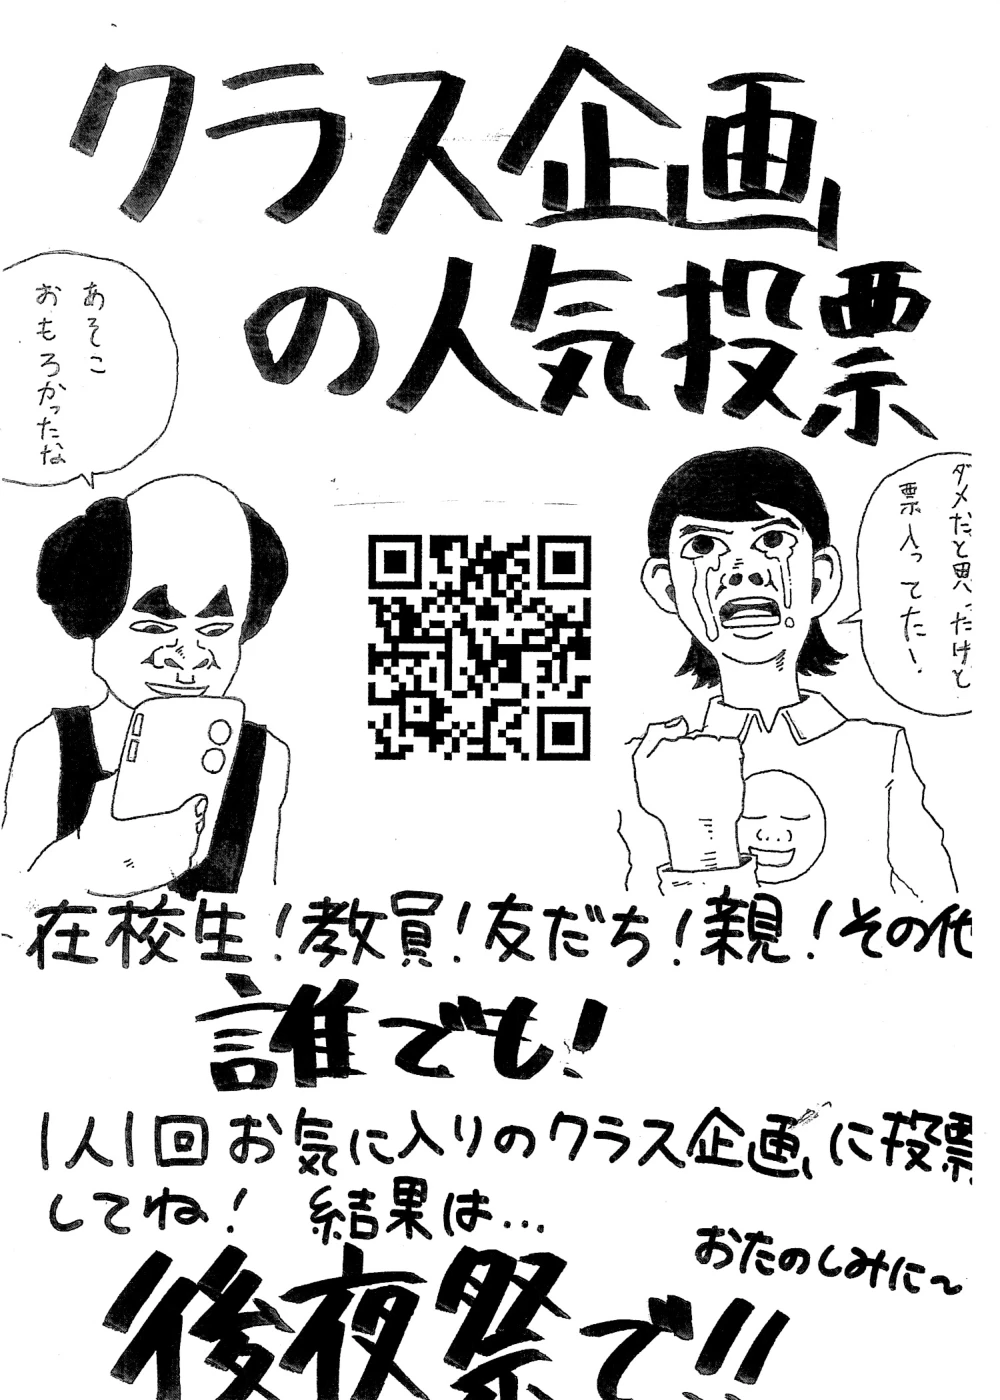 クラス企画
の人気投票
あそこ
おもろかったな
ダメだと思ったけど
票入ってた!
在校生!教員!友だち!親!その他
誰でも!
1人1回お気に入りのクラス企画に投票
してね! 結果は...
おたのしみに〜
後夜祭で!!